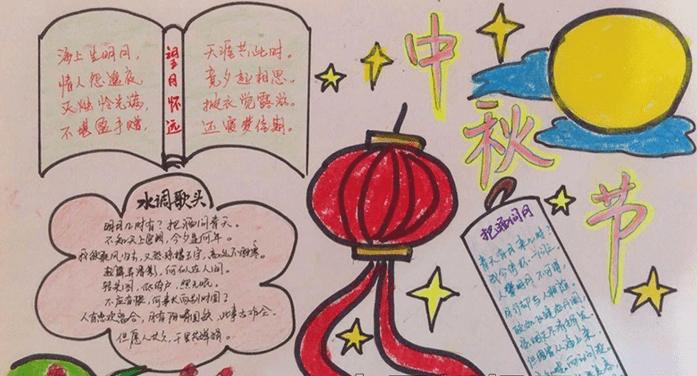 中秋节
望月怀远
海上生明月,
情人怨遥夜,
灭烛怜光满,
不堪盈手赠,
天涯共此时。
竟夕起相思。
披衣觉露滋。
还寝梦佳期。
水调歌头
明月几时有?把酒问青天。
不知天上宫阙,今夕是何年。
我欲乘风归去,又恐琼楼玉宇,高处不胜寒。
起舞弄清影,何似在人间。
转朱阁,低绮户,照无眠。
不应有恨,何事长向别时圆?
人有悲欢离合,月有阴晴圆缺,此事古难全。
但愿人长久,千里共婵娟。
把酒问月
青天有月来几时?
我今停杯一问之。
人攀明月不可得,
月行却与人相随。